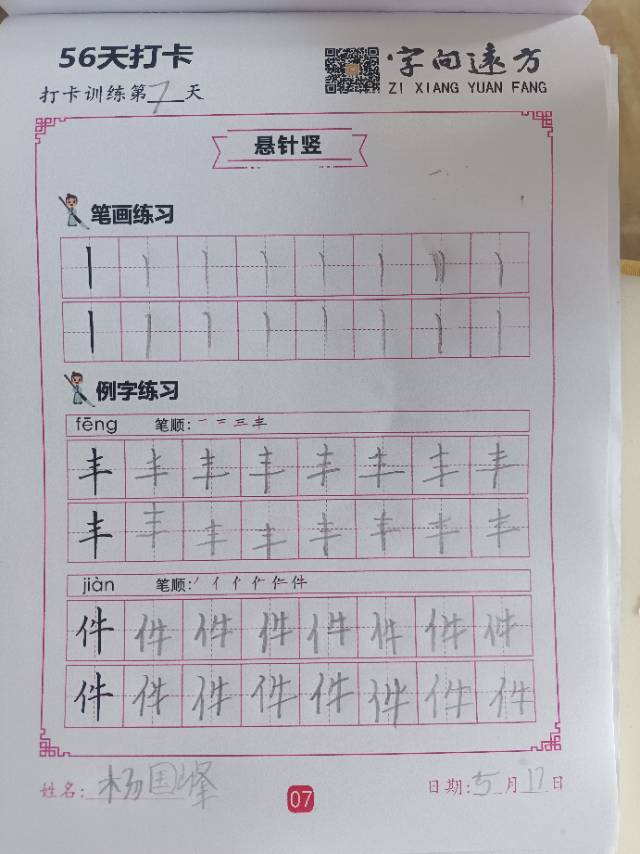 56天打卡
字向远方
打卡训练第7天
ZI XIANG YUAN FANG
悬针竖
笔画练习
丨丨丨丨丨丨丨丨
丨丨丨丨丨丨丨丨
例字练习
fēng 笔顺:一 二 三 丰
丰丰丰丰丰丰丰丰
丰丰丰丰丰丰丰丰
jiàn 笔顺:
件件件件件件件件
件件件件件件件件
姓名:杨国峰
07
日期:5月17日